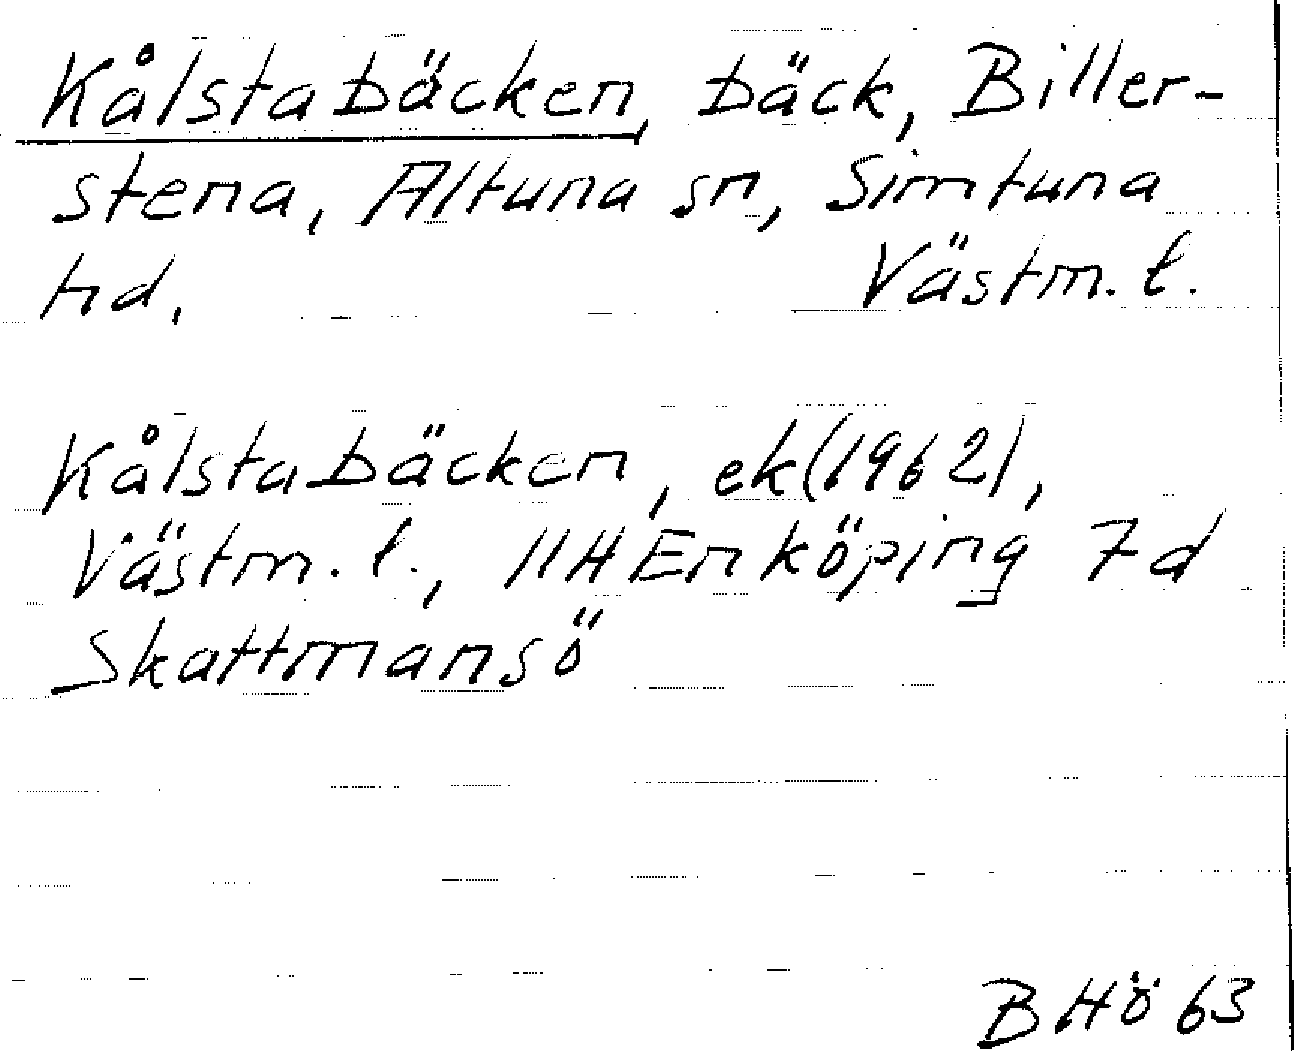 Kålstabäcken, bäck, Biller-
stena, Altuna sn, Simtuna
hd, Västm. l.
Kålstabäcken, ek(1962),
Västm. l., 11H Enköping 7d
Skattmansö
B Hö 63